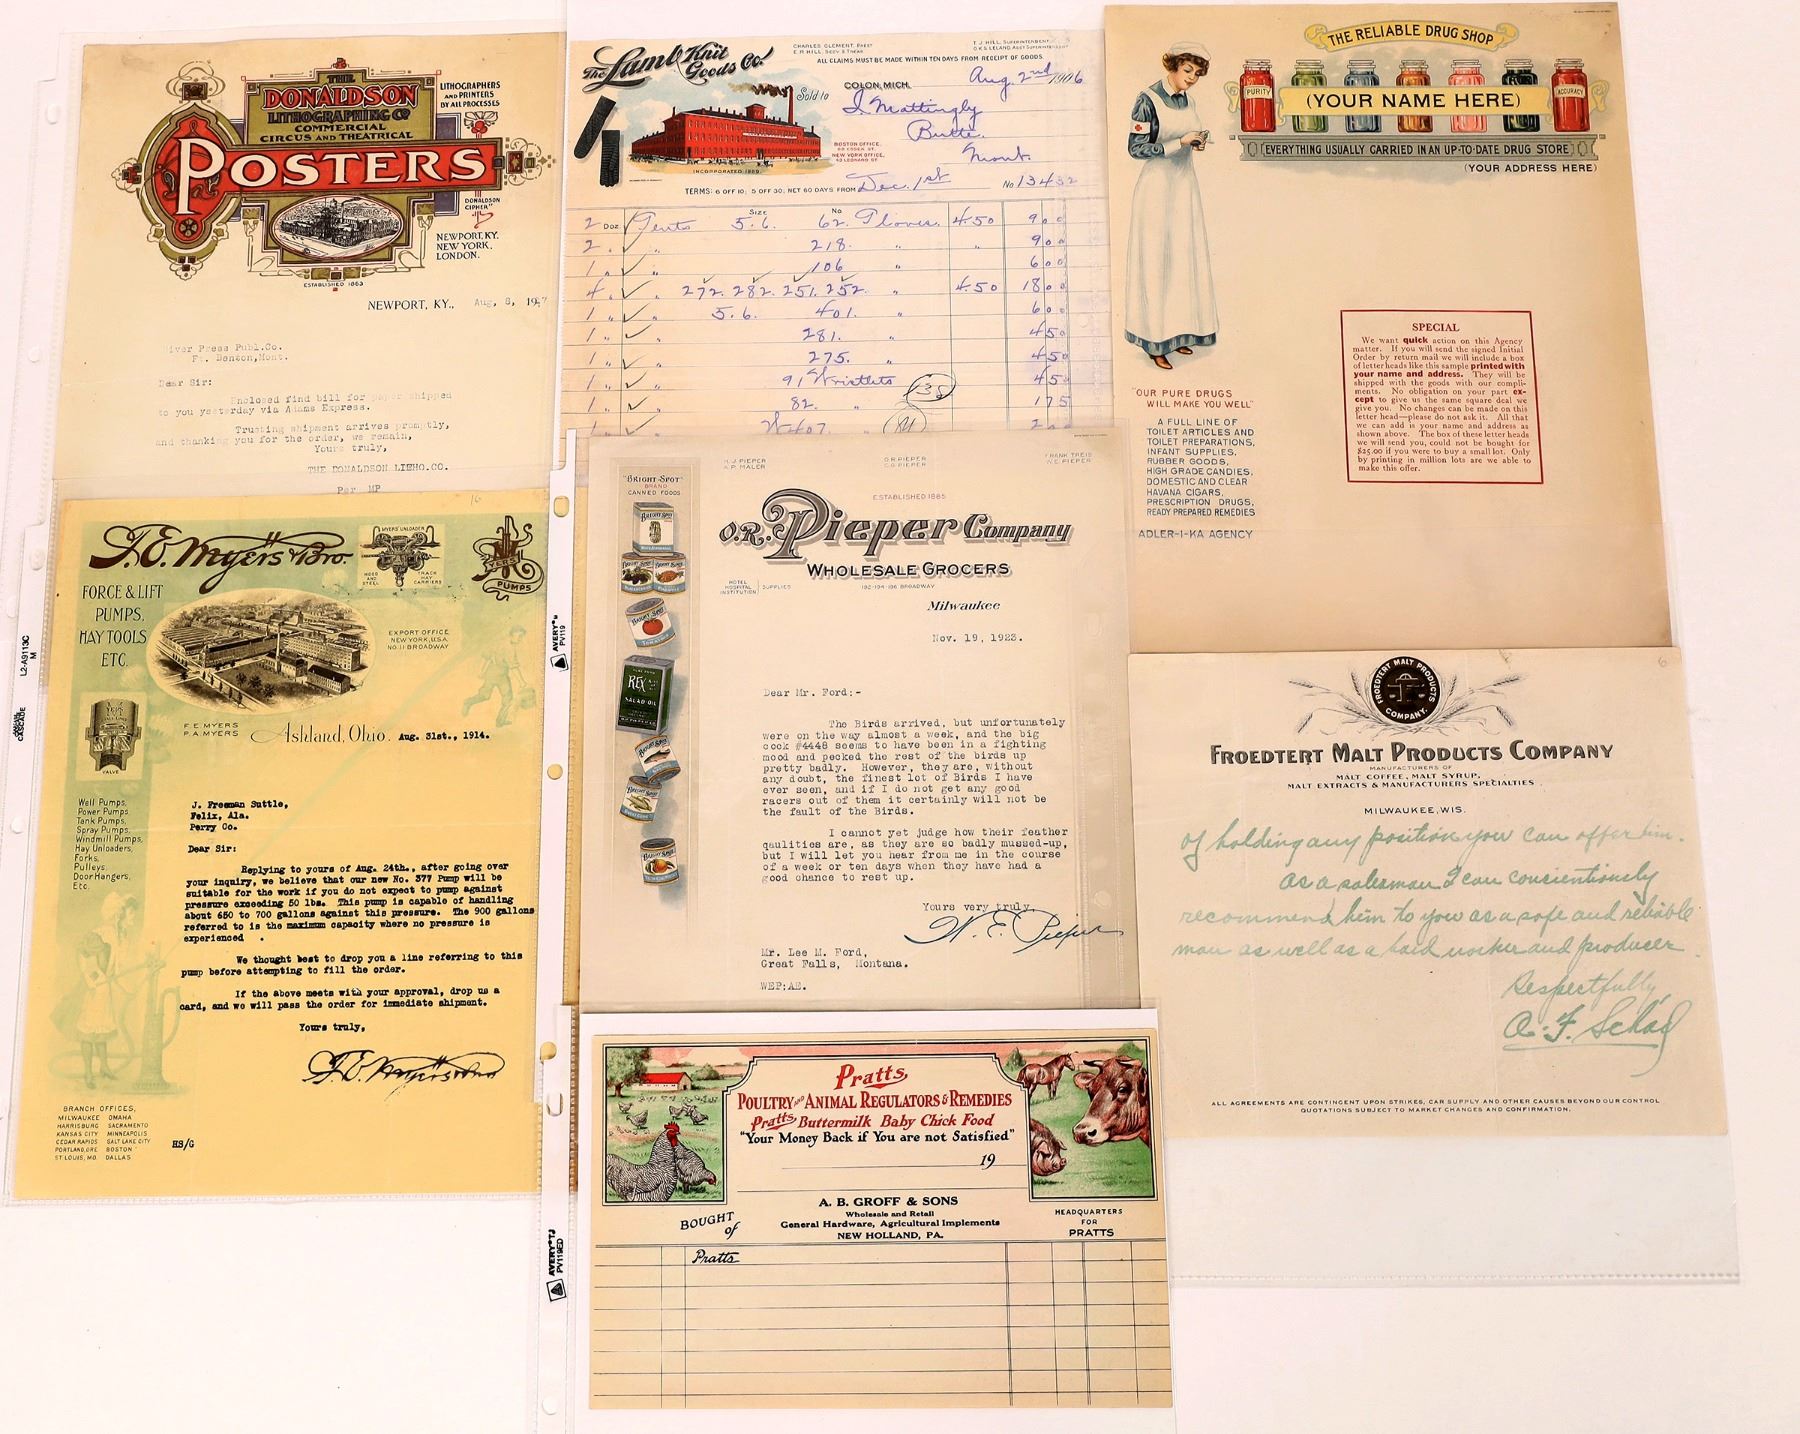 THE
DONALDSON
LITHOGRAPHING CO
COMMERCIAL
CIRCUS AND THEATRICAL
POSTERS
LITHOGRAPHERS
AND PRINTERS
BY ALL PROCESSES
DONALDSON
CIPHER
NEWPORT, KY.
NEW YORK.
LONDON.
ESTABLISHED 1863
NEWPORT, KY., Aug. 8, 19
River Press Publ.Co.
Ft. Benzon, Mont.
Dear Sir:
Enclosed find bill for paper shipped
to you yesterday via Adams Express.
Trusting shipment arrives promptly,
and thanking you for the order, we remain,
Yours truly,
THE DONALDSON LITHO.CO.
Per MP
The Lamb Knit
Goods Co.
CHARLES CLEMENT, PREST
E.R. HILL, SECY & TREAS
T.J. HILL, SUPERINTENDENT
O.K.S LELAND, ASST SUPERINTENDENT
ALL CLAIMS MUST BE MADE WITHIN TEN DAYS FROM RECEIPT OF GOODS.
COLON, MICH. Aug. 2nd 1906
Sold to
I Mattingly
Butte.
Mont.
BOSTON OFFICE,
NEW YORK OFFICE,
INCORPORATED 1889.
TERMS: 6 OFF 10; 5 OFF 30; NET 60 DAYS FROM Dec. 1st No 13432
Size No
2 Doz Gents 5.6. 62. Gloves. 4.50 9 00
2 " " 218. " " 9 00
1 " " 106 " 6 00
4 " " 272. 282. 251. 252. " 4.50 18 00
1 " " 5.6. 401. " 6 00
1 " " 281. " 4 50
1 " " 275. " 4 50
1 " " 91 Wristlets 4 50
1 " " 82. " 1 75
THE RELIABLE DRUG SHOP
PURITY
(YOUR NAME HERE)
ACCURACY
EVERYTHING USUALLY CARRIED IN AN UP-TO-DATE DRUG STORE
(YOUR ADDRESS HERE)
SPECIAL
We want quick action on this Agency
matter. If you will send the signed Initial
Order by return mail we will include a box
of letter heads like this sample printed with
your name and address. They will be
shipped with the goods with our compli-
ments. No obligation on your part ex-
cept to give us the same square deal we
give you. No changes can be made on this
letter head—please do not ask it. All that
we can add is your name and address as
shown above. The box of these letter heads
we will send you, could not be bought for
$25.00 if you were to buy a small lot. Only
by printing in million lots are we able to
make this offer.
"OUR PURE DRUGS
WILL MAKE YOU WELL"
A FULL LINE OF
TOILET ARTICLES AND
TOILET PREPARATIONS,
INFANT SUPPLIES,
RUBBER GOODS,
HIGH GRADE CANDIES,
DOMESTIC AND CLEAR
HAVANA CIGARS,
PRESCRIPTION DRUGS,
READY PREPARED REMEDIES
ADLER-I-KA AGENCY
16
F.E. Myers & Bro.
MYERS' UNLOADER
WOOD
AND
STEEL
TRACK
HAY
CARRIERS
MYERS
PUMPS
FORCE & LIFT
PUMPS,
HAY TOOLS
ETC.
EXPORT OFFICE
NEW YORK, U.S.A.
NO. 11 BROADWAY
VALVE
F.E. MYERS
P.A. MYERS
Ashland, Ohio. Aug. 31st., 1914.
Well Pumps,
Power Pumps,
Tank Pumps,
Spray Pumps,
Windmill Pumps,
Hay Unloaders,
Forks,
Pulleys,
Door Hangers,
Etc.
J. Freeman Suttle,
Felix, Ala.
Perry Co.
Dear Sir:
Replying to yours of Aug. 24th., after going over
your inquiry, we believe that our new No. 377 Pump will be
suitable for the work if you do not expect to pump against
pressure exceeding 50 lbs. This pump is capable of handling
about 650 to 700 gallons against this pressure. The 900 gallons
referred to is the maximum capacity where no pressure is
experienced .
We thought best to drop you a line referring to this
pump before attempting to fill the order.
If the above meets with your approval, drop us a
card, and we will pass the order for immediate shipment.
Yours truly,
F.E. Myers & Bro
BRANCH OFFICES,
MILWAUKEE OMAHA
HARRISBURG SACRAMENTO
KANSAS CITY MINNEAPOLIS
CEDAR RAPIDS SALT LAKE CITY
PORTLAND, ORE BOSTON
ST LOUIS, MO. DALLAS
HS/G
H.J. PIEPER
A.P. MALER
O.R. PIEPER
C.G. PIEPER
FRANK TREIS
W.E. PIEPER
"BRIGHT-SPOT"
BRAND
CANNED FOODS
ESTABLISHED 1885
O.R. Pieper Company
WHOLESALE GROCERS
HOTEL
HOSPITAL
INSTITUTION
SUPPLIES
192-194-196 BROADWAY
Milwaukee
Nov. 19, 1923.
BRIGHT SPOT
REX
SALAD OIL
Dear Mr. Ford:-
The Birds arrived, but unfortunately
were on the way almost a week, and the big
cock #4448 seems to have been in a fighting
mood and pecked the rest of the birds up
pretty badly. However, they are, without
any doubt, the finest lot of Birds I have
ever seen, and if I do not get any good
racers out of them it certainly will not be
the fault of the Birds.
I cannot yet judge how their feather
qaulities are, as they are so badly mussed-up,
but I will let you hear from me in the course
of a week or ten days when they have had a
good chance to rest up.
Yours very truly
W. E. Pieper
Mr. Lee M. Ford,
Great Falls, Montana.
WEP;AE.
6
FROEDTERT MALT PRODUCTS
COMPANY.
FROEDTERT MALT PRODUCTS COMPANY
MANUFACTURERS OF
MALT COFFEE, MALT SYRUP,
MALT EXTRACTS & MANUFACTURERS SPECIALTIES
MILWAUKEE, WIS.
of holding any position you can offer him.
As a salesman I can concientionsly
recommend him to you as a safe and reliable
man as well as a hard worker and producer.
Respectfully,
A. F. Schad
ALL AGREEMENTS ARE CONTINGENT UPON STRIKES, CAR SUPPLY AND OTHER CAUSES BEYOND OUR CONTROL
QUOTATIONS SUBJECT TO MARKET CHANGES AND CONFIRMATION.
Pratts
POULTRY AND ANIMAL REGULATORS & REMEDIES
Pratts Buttermilk Baby Chick Food
"Your Money Back if You are not Satisfied"
19
A. B. GROFF & SONS
Wholesale and Retail
General Hardware, Agricultural Implements
NEW HOLLAND, PA.
BOUGHT
of
HEADQUARTERS
FOR
PRATTS
Pratts
L2-A9113C
M
CASCADE
AVERY
PV119
AVERY
PV119ED